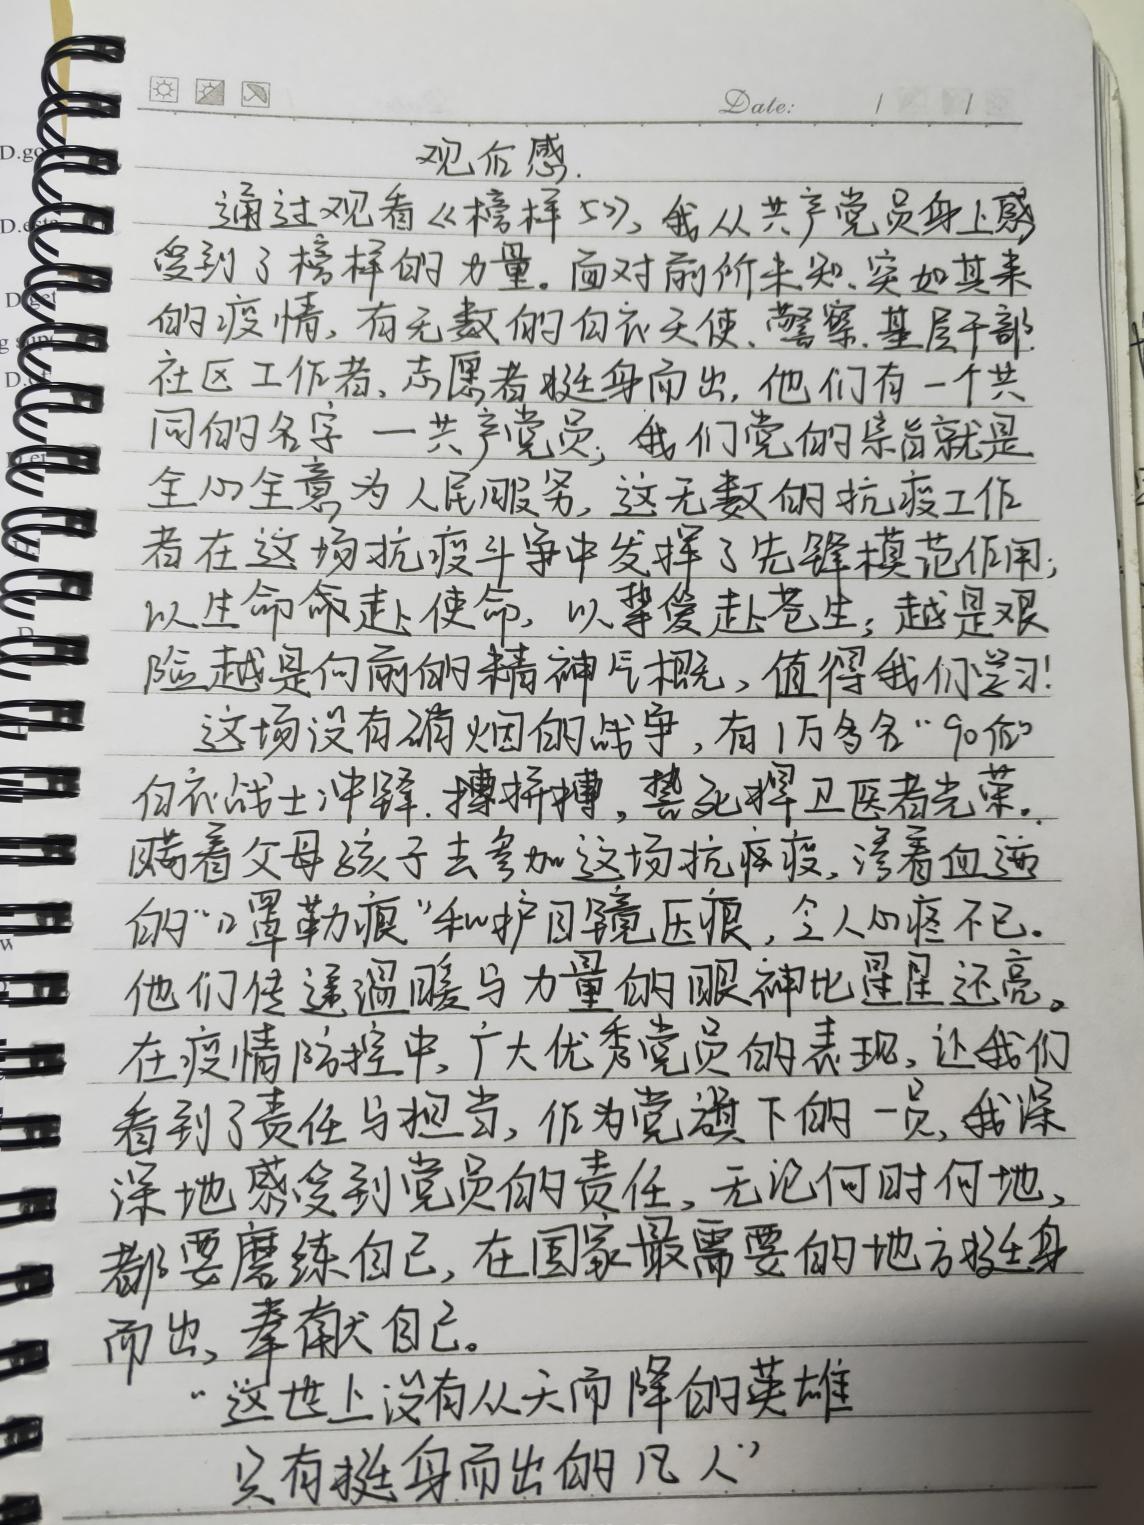 D.go
Date: / /
D.esta
D.get
g supp
D.et
观后感.
通过观看《榜样5》,我从共产党员身上感
受到了榜样的力量。面对前所未知、突如其来
的疫情,有无数的白衣天使、警察、基层干部、
社区工作者、志愿者挺身而出,他们有一个共
同的名字 一共产党员,我们党的宗旨就是
全心全意为人民服务,这无数的抗疫工作
者在这场抗疫斗争中发挥了先锋模范作用;
以生命命赴使命,以挚爱赴苍生;越是艰
险越是向前的精神气概,值得我们学习!
这场没有硝烟的战争,有1万多名“90后”
白衣战士冲锋.搏拼搏,誓死捍卫医者光荣.
瞒着父母孩子去参加这场抗疫疫,渗着血迹
的“口罩勒痕”和护目镜压痕,令人心疼不已。
他们传递温暖与力量的眼神比星星还亮。
在疫情防控中,广大优秀党员的表现,让我们
看到了责任与担当,作为党旗下的一员,我深
深地感受到党员的责任,无论何时何地,
都要磨练自己,在国家最需要的地方挺身
而出,奉献自己。
“这世上没有从天而降的英雄
只有挺身而出的凡人”